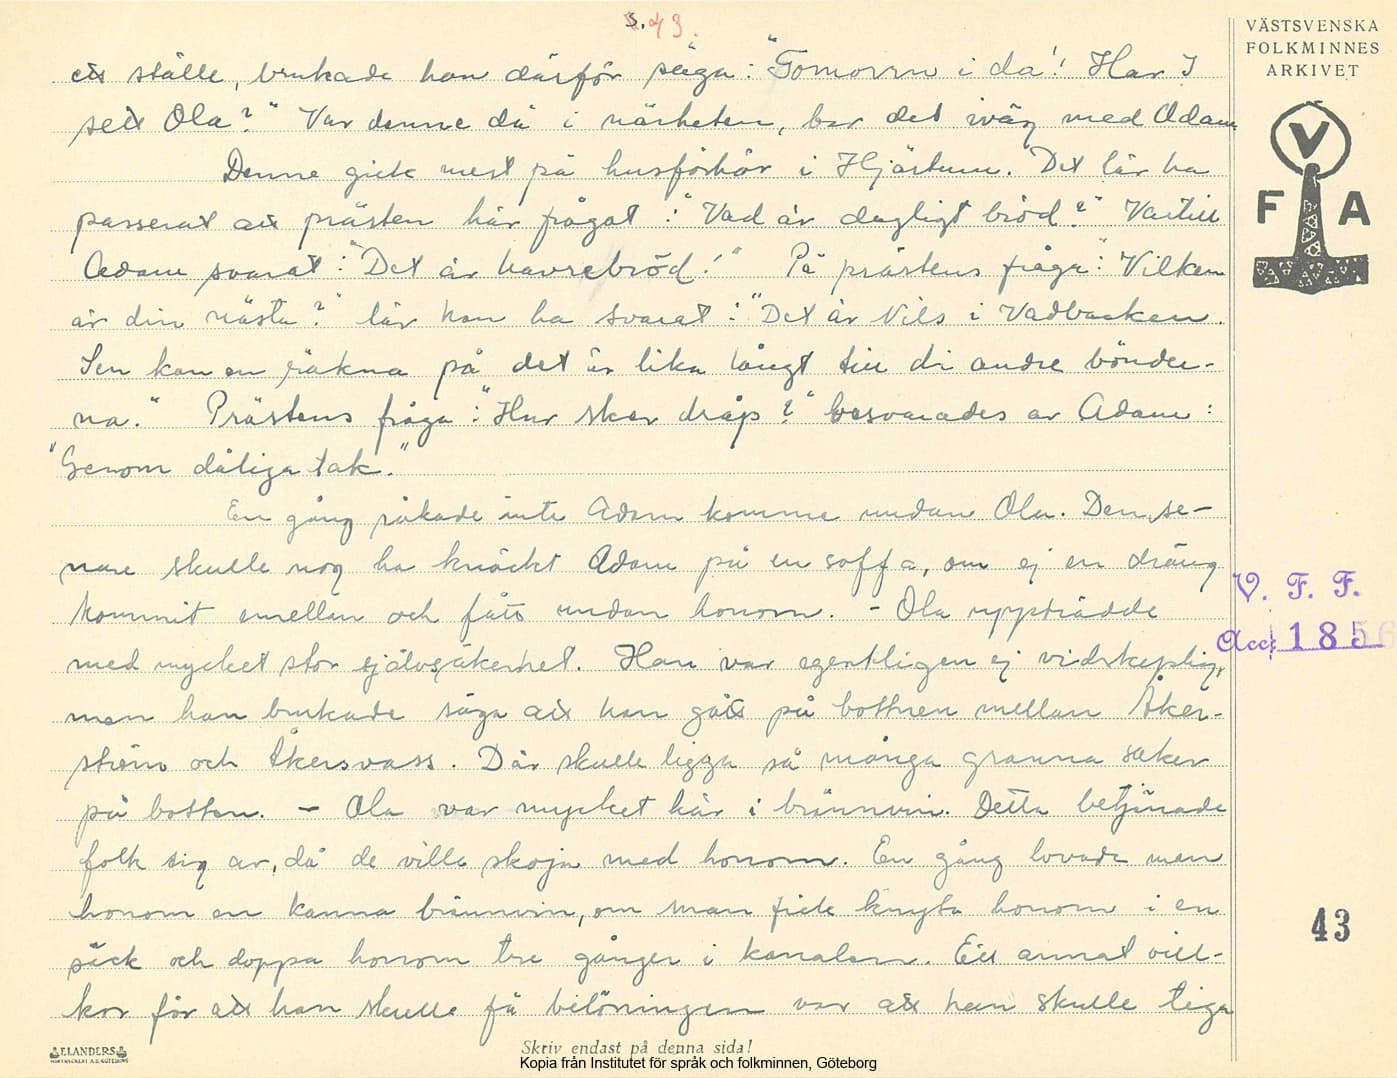 s. 43.
VÄSTSVENSKA
FOLKMINNES
ARKIVET
V
F A
ett ställe, brukade han därför säga: "Gomorrn i da'! Har I
sett Ola?" Var denne då i närheten, bar det iväg med Adam
Denne gick mest på husförhör i Hjärtum. Det lär ha
passerat att prästen här frågat: "Vad är dagligt bröd?" Vartill
Adam svarat: "Det är havrebröd!" På prästens fråga: "Vilken
är din nästa?" lär han ha svarat: "Det är Nils i Vadbacken.
Sen kan en räkna på det är lika långt till di andre bönder-
na." Prästens fråga: "Hur sker dråp?" besvarades av Adam:
"Genom dåliga tak."
En gång råkade inte Adam komma undan Ola. Den se-
nare skulle nog ha knäckt Adam på en soffa, om ej en dräng
kommit emellan och fått undan honom. - Ola uppträdde
med mycket stor självsäkerhet. Han var egentligen ej vidskeplig,
men han brukade säga att han gått på bottnen mellan Åker-
ström och Åkersvass. Där skulle ligga så många granna saker
på botten. - Ola var mycket kär i brännvin. Detta betjänade
folk sig av, då de ville skoja med honom. En gång lovade man
honom en kanna brännvin, om man fick knyta honom i en
säck och doppa honom tre gånger i kanalen. Ett annat vill-
kor för att han skulle få belöningen var att han skulle tiga
V. F. F.
Acc. 1856
43
ELANDERS
Skriv endast på denna sida!
Kopia från Institutet för språk och folkminnen, Göteborg